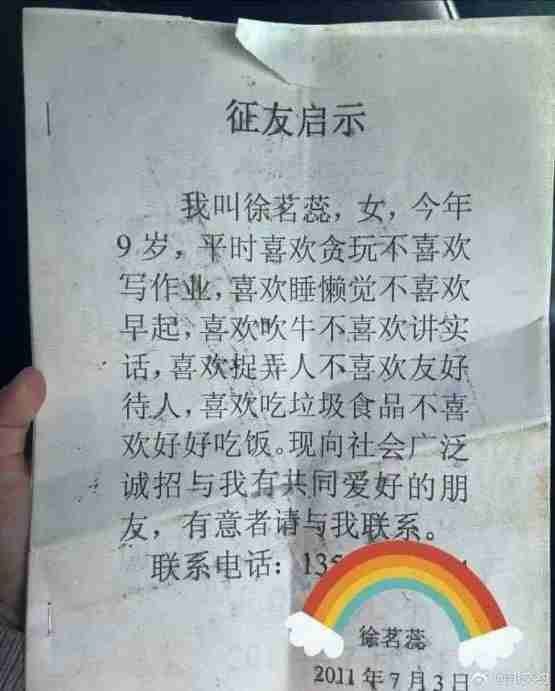 征友启示
我叫徐茗蕊，女，今年
9岁，平时喜欢贪玩不喜欢
写作业，喜欢睡懒觉不喜欢
早起，喜欢吹牛不喜欢讲实
话，喜欢捉弄人不喜欢友好
待人，喜欢吃垃圾食品不喜
欢好好吃饭。现向社会广泛
诚招与我有共同爱好的朋
友，有意者请与我联系。
联系电话：135
徐茗蕊
2011年7月3日